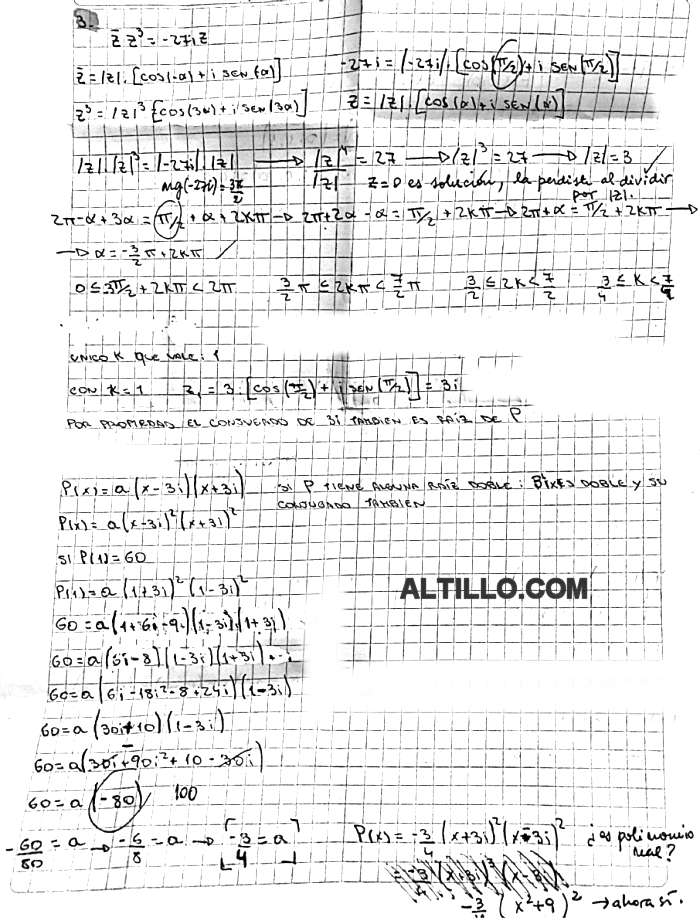 3.
z̄ z³ = -27i z
z̄ = |z| · [cos(-α) + i sen(-α)]
-27i = |-27i| · [cos(π/2) + i sen(π/2)]
z³ = |z|³ [cos(3α) + i sen(3α)]
z = |z| · [cos(α) + i sen(α)]
|z| · |z|³ = |-27i| · |z| → |z|⁴/|z| = 27 → |z|³ = 27 → |z| = 3
arg(-27i) = 3π/2
z = 0 es solución, la perdiste al dividir
por |z|.
2π - α + 3α = π/2 + α + 2kπ → 2π + 2α - α = π/2 + 2kπ → 2π + α = π/2 + 2kπ →
→ α = -3/2 π + 2kπ
0 ≤ 3π/2 + 2kπ < 2π
3/2 π ≤ 2kπ < 7/2 π
3/2 ≤ 2k < 7/2
3/4 ≤ k < 7/4
único k que vale: 1
con k = 1 z₁ = 3 · [cos(π/2) + i sen(π/2)] = 3i
por propiedad el conjugado de 3i también es raíz de P
P(x) = a(x - 3i)(x + 3i)
si P tiene alguna raíz doble: 3i es doble y su
conjugado también
P(x) = a(x - 3i)²(x + 3i)²
si P(1) = 60
P(1) = a(1 + 3i)²(1 - 3i)²
ALTILLO.COM
60 = a(1 + 6i - 9)(1 - 3i)(1 + 3i)
60 = a(6i - 8)(1 - 3i)(1 + 3i)
60 = a(6i - 18i² - 8 + 24i)(1 - 3i)
60 = a(30i + 10)(1 - 3i)
60 = a(30i + 90i² + 10 - 30i)
60 = a(-80) 100
-60/80 = a → -6/8 = a → [-3/4 = a]
P(x) = -3/4 (x + 3i)²(x - 3i)²
¿es polinomio
real?
= -3/4 (x + 3i)² (x - 3i)²
-3/4 (x² + 9)² → ahora sí.